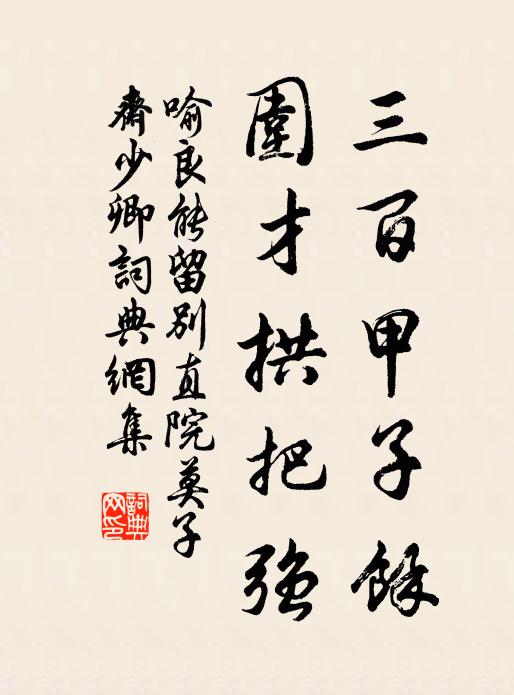 三百甲子餘
圍才拱把強
喻良能留別直院莫子
齊少卿詞典網集
詞典網印